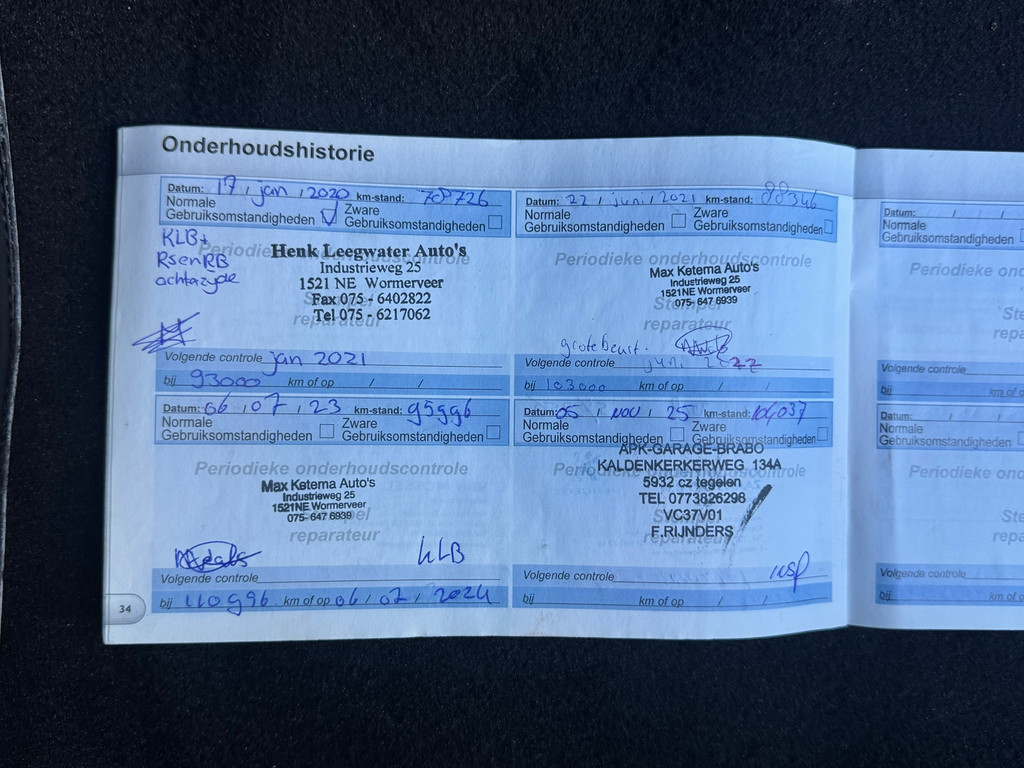 Onderhoudshistorie
Datum: 17 / jan / 2020 km-stand: 78726
Normale Gebruiksomstandigheden Zware Gebruiksomstandigheden
KLB+
RsenRB
achterzyde
Periodieke onderhoudscontrole
Henk Leegwater Auto's
Industrieweg 25
1521 NE Wormerveer
Fax 075 - 6402822
Tel 075 - 6217062
Stempel
reparateur
Volgende controle jan 2021
bij 93000 km of op / /
Datum: 22 / juni / 2021 km-stand: 88346
Normale Gebruiksomstandigheden Zware Gebruiksomstandigheden
Periodieke onderhoudscontrole
Max Ketema Auto's
Industrieweg 25
1521NE Wormerveer
075- 647 6939
Stempel
reparateur
grote beurt.
Volgende controle juni 2022
bij 103000 km of op / /
Datum: 06 / 07 / 23 km-stand: 95996
Normale Gebruiksomstandigheden Zware Gebruiksomstandigheden
Periodieke onderhoudscontrole
Max Ketema Auto's
Industrieweg 25
1521NE Wormerveer
075- 647 6939
Stempel
reparateur
KLB
Volgende controle
bij 110996 km of op 06 / 07 / 2024
Datum: 05 / nov / 25 km-stand: 104037
Normale Gebruiksomstandigheden Zware Gebruiksomstandigheden
Periodieke onderhoudscontrole
APK-GARAGE-BRABO
KALDENKERKERWEG 134A
5932 cz tegelen
TEL 0773826298
VC37V01
F.RIJNDERS
Stempel
reparateur
Volgende controle
bij km of op / /
34
Datum: / /
Normale
Gebruiksomstandigheden
Periodieke ond
Ste
repara
Volgende controle
bij km of o
Datum: / /
Normale
Gebruiksomstandigheden
Periodieke ond
Ste
repara
Volgende controle
bij km of o